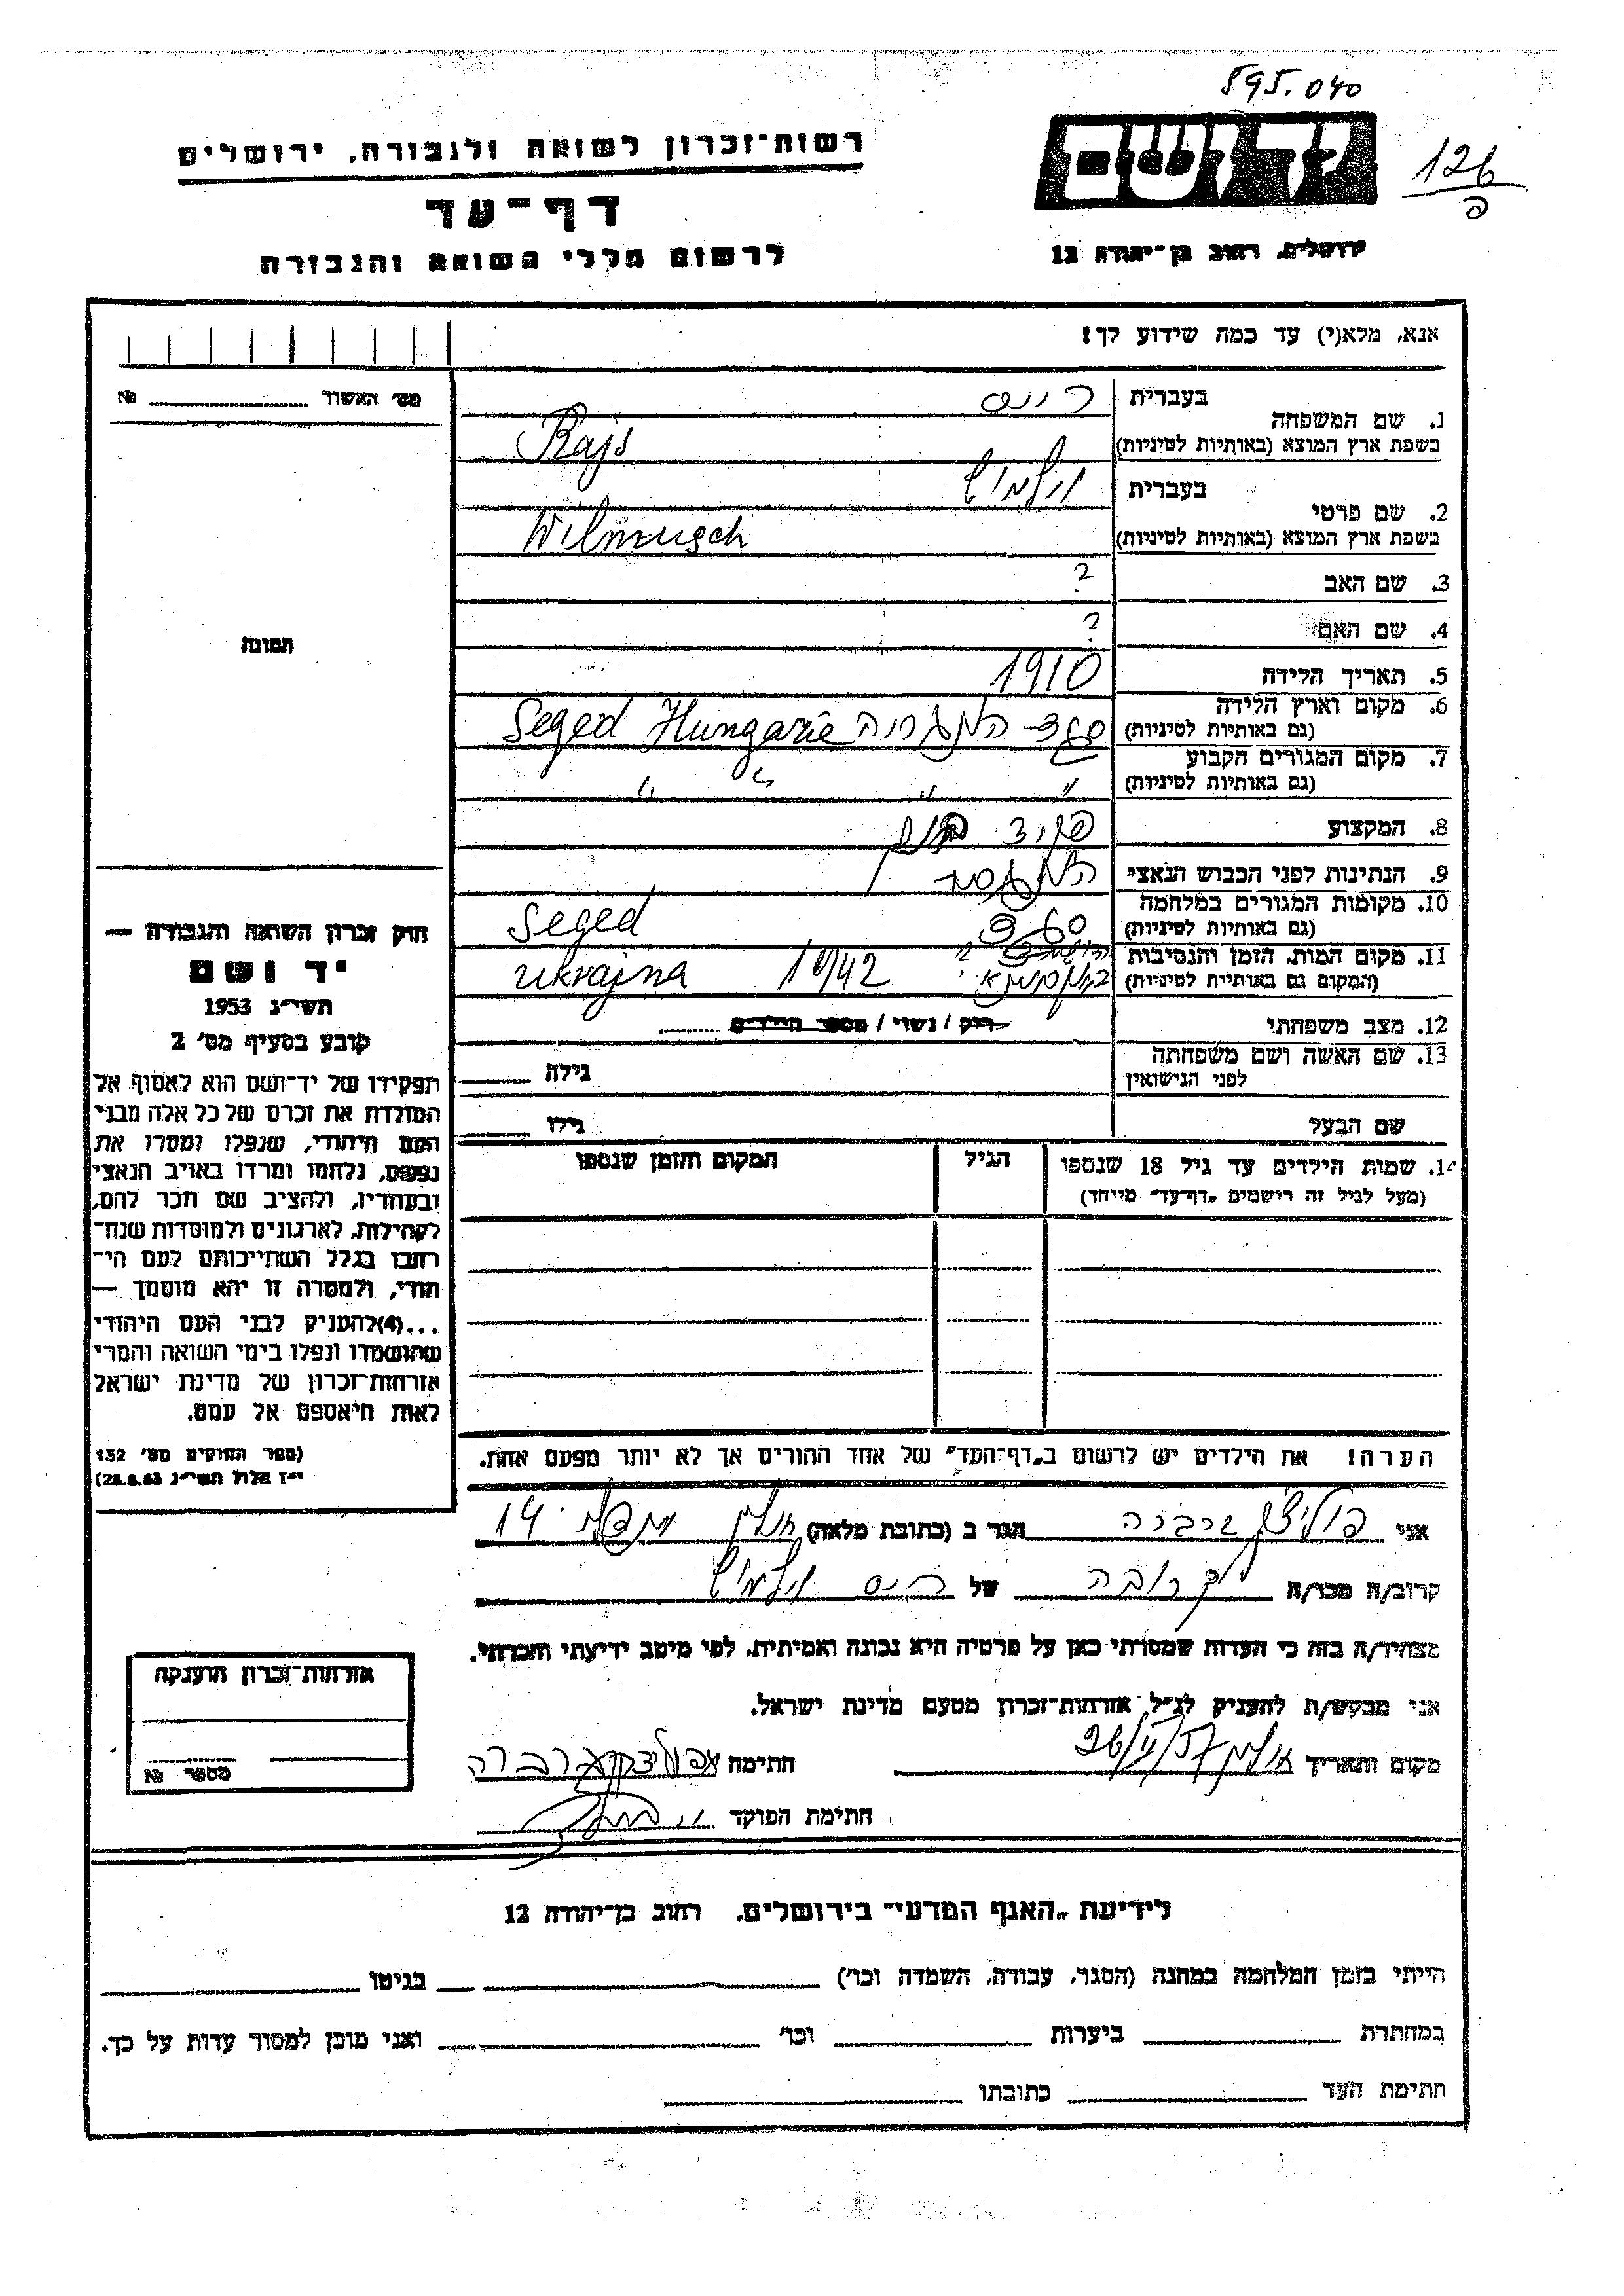 595.040
יד ושם
126
פ
רשות־זכרון לשואה ולגבורה, ירושלים
דף־עד
לרשום חללי השואה והגבורה
ירושלים, רחוב בן־יהודה 12
אנא, מלא(י) עד כמה שידוע לך!
מס׳ האשור №
1. שם המשפחה
בעברית רייס
בשפת ארץ המוצא (באותיות לטיניות) Rajs
2. שם פרטי
בעברית וילמוש
בשפת ארץ המוצא (באותיות לטיניות) Wilmusch
3. שם האב ?
4. שם האם ?
5. תאריך הלידה 1910
6. מקום וארץ הלידה (גם באותיות לטיניות) סגד הונגריה Seged Hungarie
7. מקום המגורים הקבוע (גם באותיות לטיניות) " " " "
8. המקצוע פקיד
9. הנתינות לפני הכבוש הנאצי
10. מקומות המגורים במלחמה (גם באותיות לטיניות) סגד Seged
11. מקום המות, הזמן והנסיבות (המקום גם באותיות לטיניות) 1942 Ukrajna
12. מצב משפחתי רווק / נשוי / מספר הילדים
13. שם האשה ושם משפחתה לפני הנישואין גילה
שם הבעל גילו
14. שמות הילדים עד גיל 18 שנספו (מעל לגיל זה רישמים „דף־עד״ מייחד)
הגיל
המקום והזמן שנספו
הערה! את הילדים יש לרשום ב„דף־העד״ של אחד ההורים אך לא יותר מפעם אחת.
תמונה
חוק זכרון השואה והגבורה —
יד ושם
תשי״ג 1953
קובע בסעיף מס׳ 2
תפקידו של יד־ושם הוא לאסוף אל
המולדת את זכרם של כל אלה מבני
העם היהודי, שנפלו ומסרו את
נפשם, נלחמו ומרדו באויב הנאצי
ובעוזריו, ולהציב שם וזכר להם,
לקהילות, לארגונים ולמוסדות שנח־
רבו בגלל השתייכותם לעם הי־
הודי, ולמטרה זו יהא מוסמך —
...(4)להעניק לבני העם היהודי
שהושמדו ונפלו בימי השואה והמרי
אזרחות־זכרון של מדינת ישראל
לאות היאספם אל עמם.
(ספר החוקים מס׳ 132
י״ז אלול תשי״ג 28.8.53)
אני ברברה הגר ב (כתובת מלאה) 14
קרוב/ה מכר/ה קרובה של רייס וילמוש
מצהיר/ה בזה כי העדות שמסרתי כאן על פרטיה היא נכונה ואמיתית, לפי מיטב ידיעתי והכרתי.
אני מבקש/ת להעניק לנ״ל אזרחות־זכרון מטעם מדינת ישראל.
מקום ותאריך חולון 26/V/57 חתימה
חתימת הפוקד
אזרחות־זכרון הוענקה
מספר №
לידיעת „האגף המדעי״ בירושלים, רחוב בן־יהודה 12
הייתי בזמן המלחמה במחנה (הסגר, עבודה, השמדה וכו׳) בגיטו
במחתרת ביערות וכו׳ ואני מוכן למסור עדות על כך.
חתימת העד כתובתו